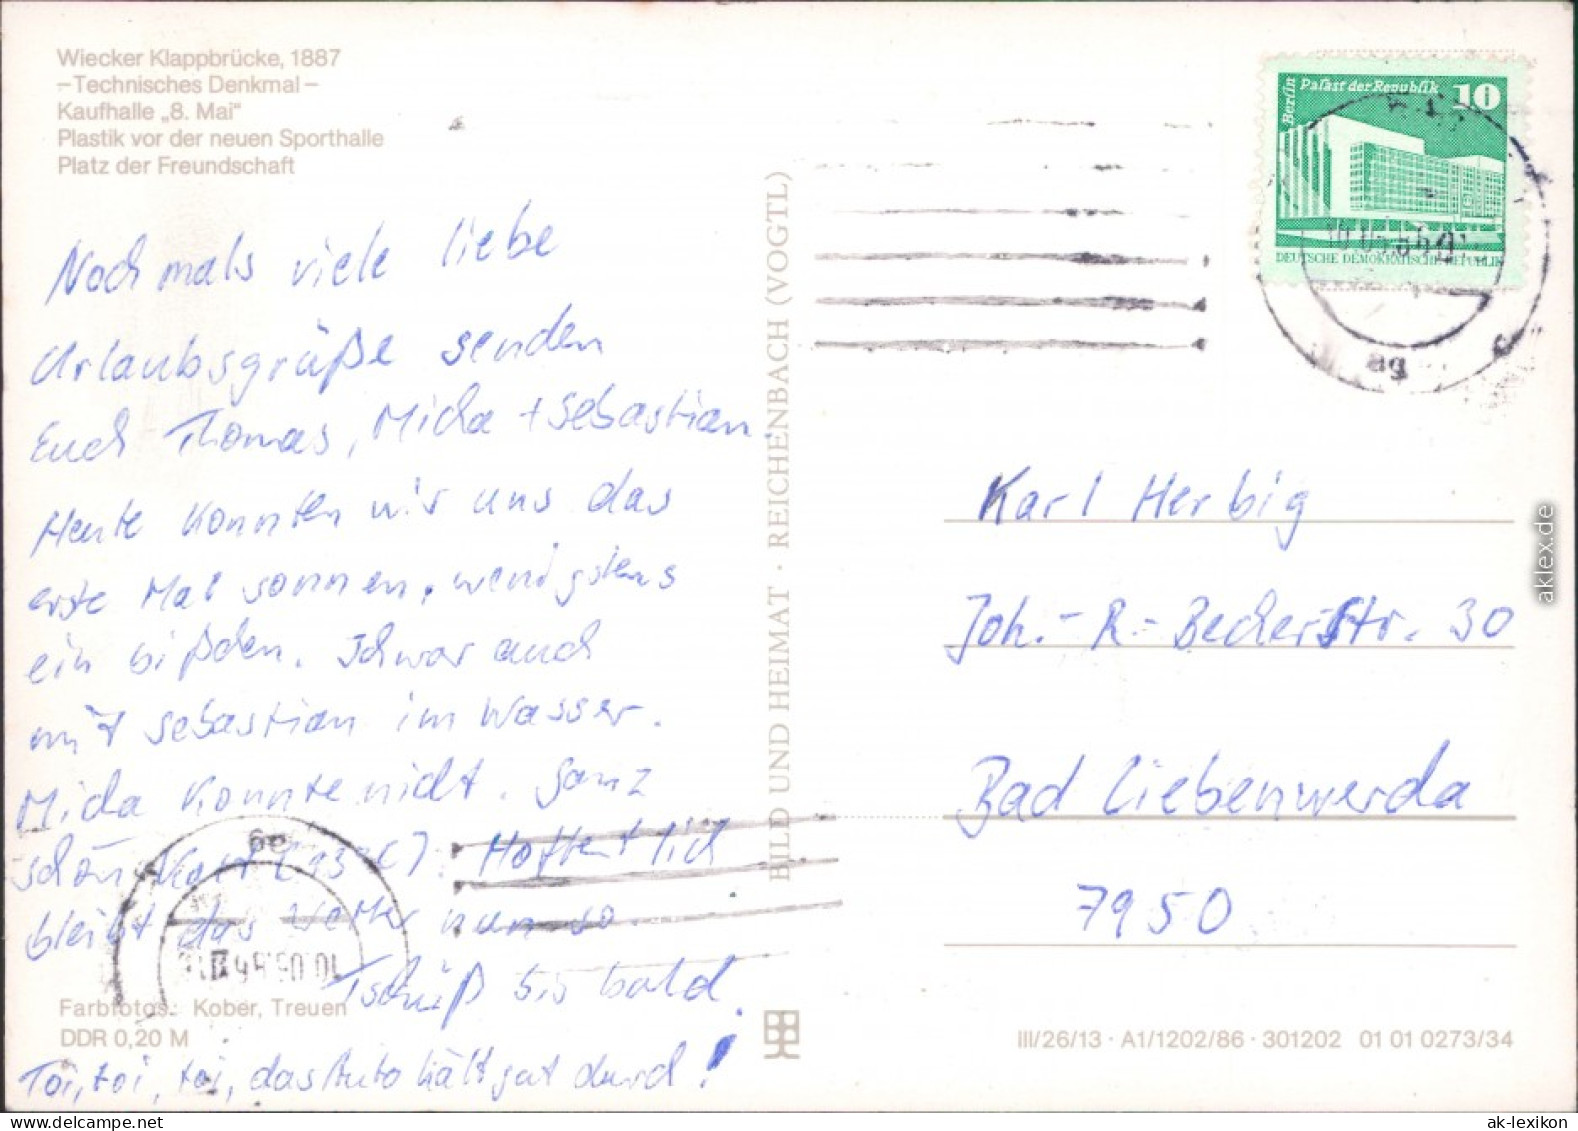 Wiecker Klappbrücke, 1887
–Technisches Denkmal–
Kaufhalle „8. Mai“
Plastik vor der neuen Sporthalle
Platz der Freundschaft
Nochmals viele liebe
Urlaubsgrüße senden
Euch Thomas, Micha + Sebastian.
Heute konnten wir uns das
erste Mal sonnen, wenigstens
ein bißchen. Ich war auch
mit Sebastian im Wasser.
Micha konnte nicht. Ganz
schön kalt (13°C). Hoffentlich
bleibt das Wetter nun so.
Tschüß bis bald.
Toi, toi, toi, das Auto hält gut durch!
Farbfotos: Kober, Treuen
DDR 0,20 M
BILD UND HEIMAT · REICHENBACH (VOGTL)
Berlin
Palast der Republik 10
DEUTSCHE DEMOKRATISCHE REPUBLIK
ag
Karl Herbig
Joh.-R.-Becher-Str. 30
Bad Liebenwerda
7950
III/26/13 · A1/1202/86 · 301202 01 01 0273/34
aklex.de
ak-lexikon